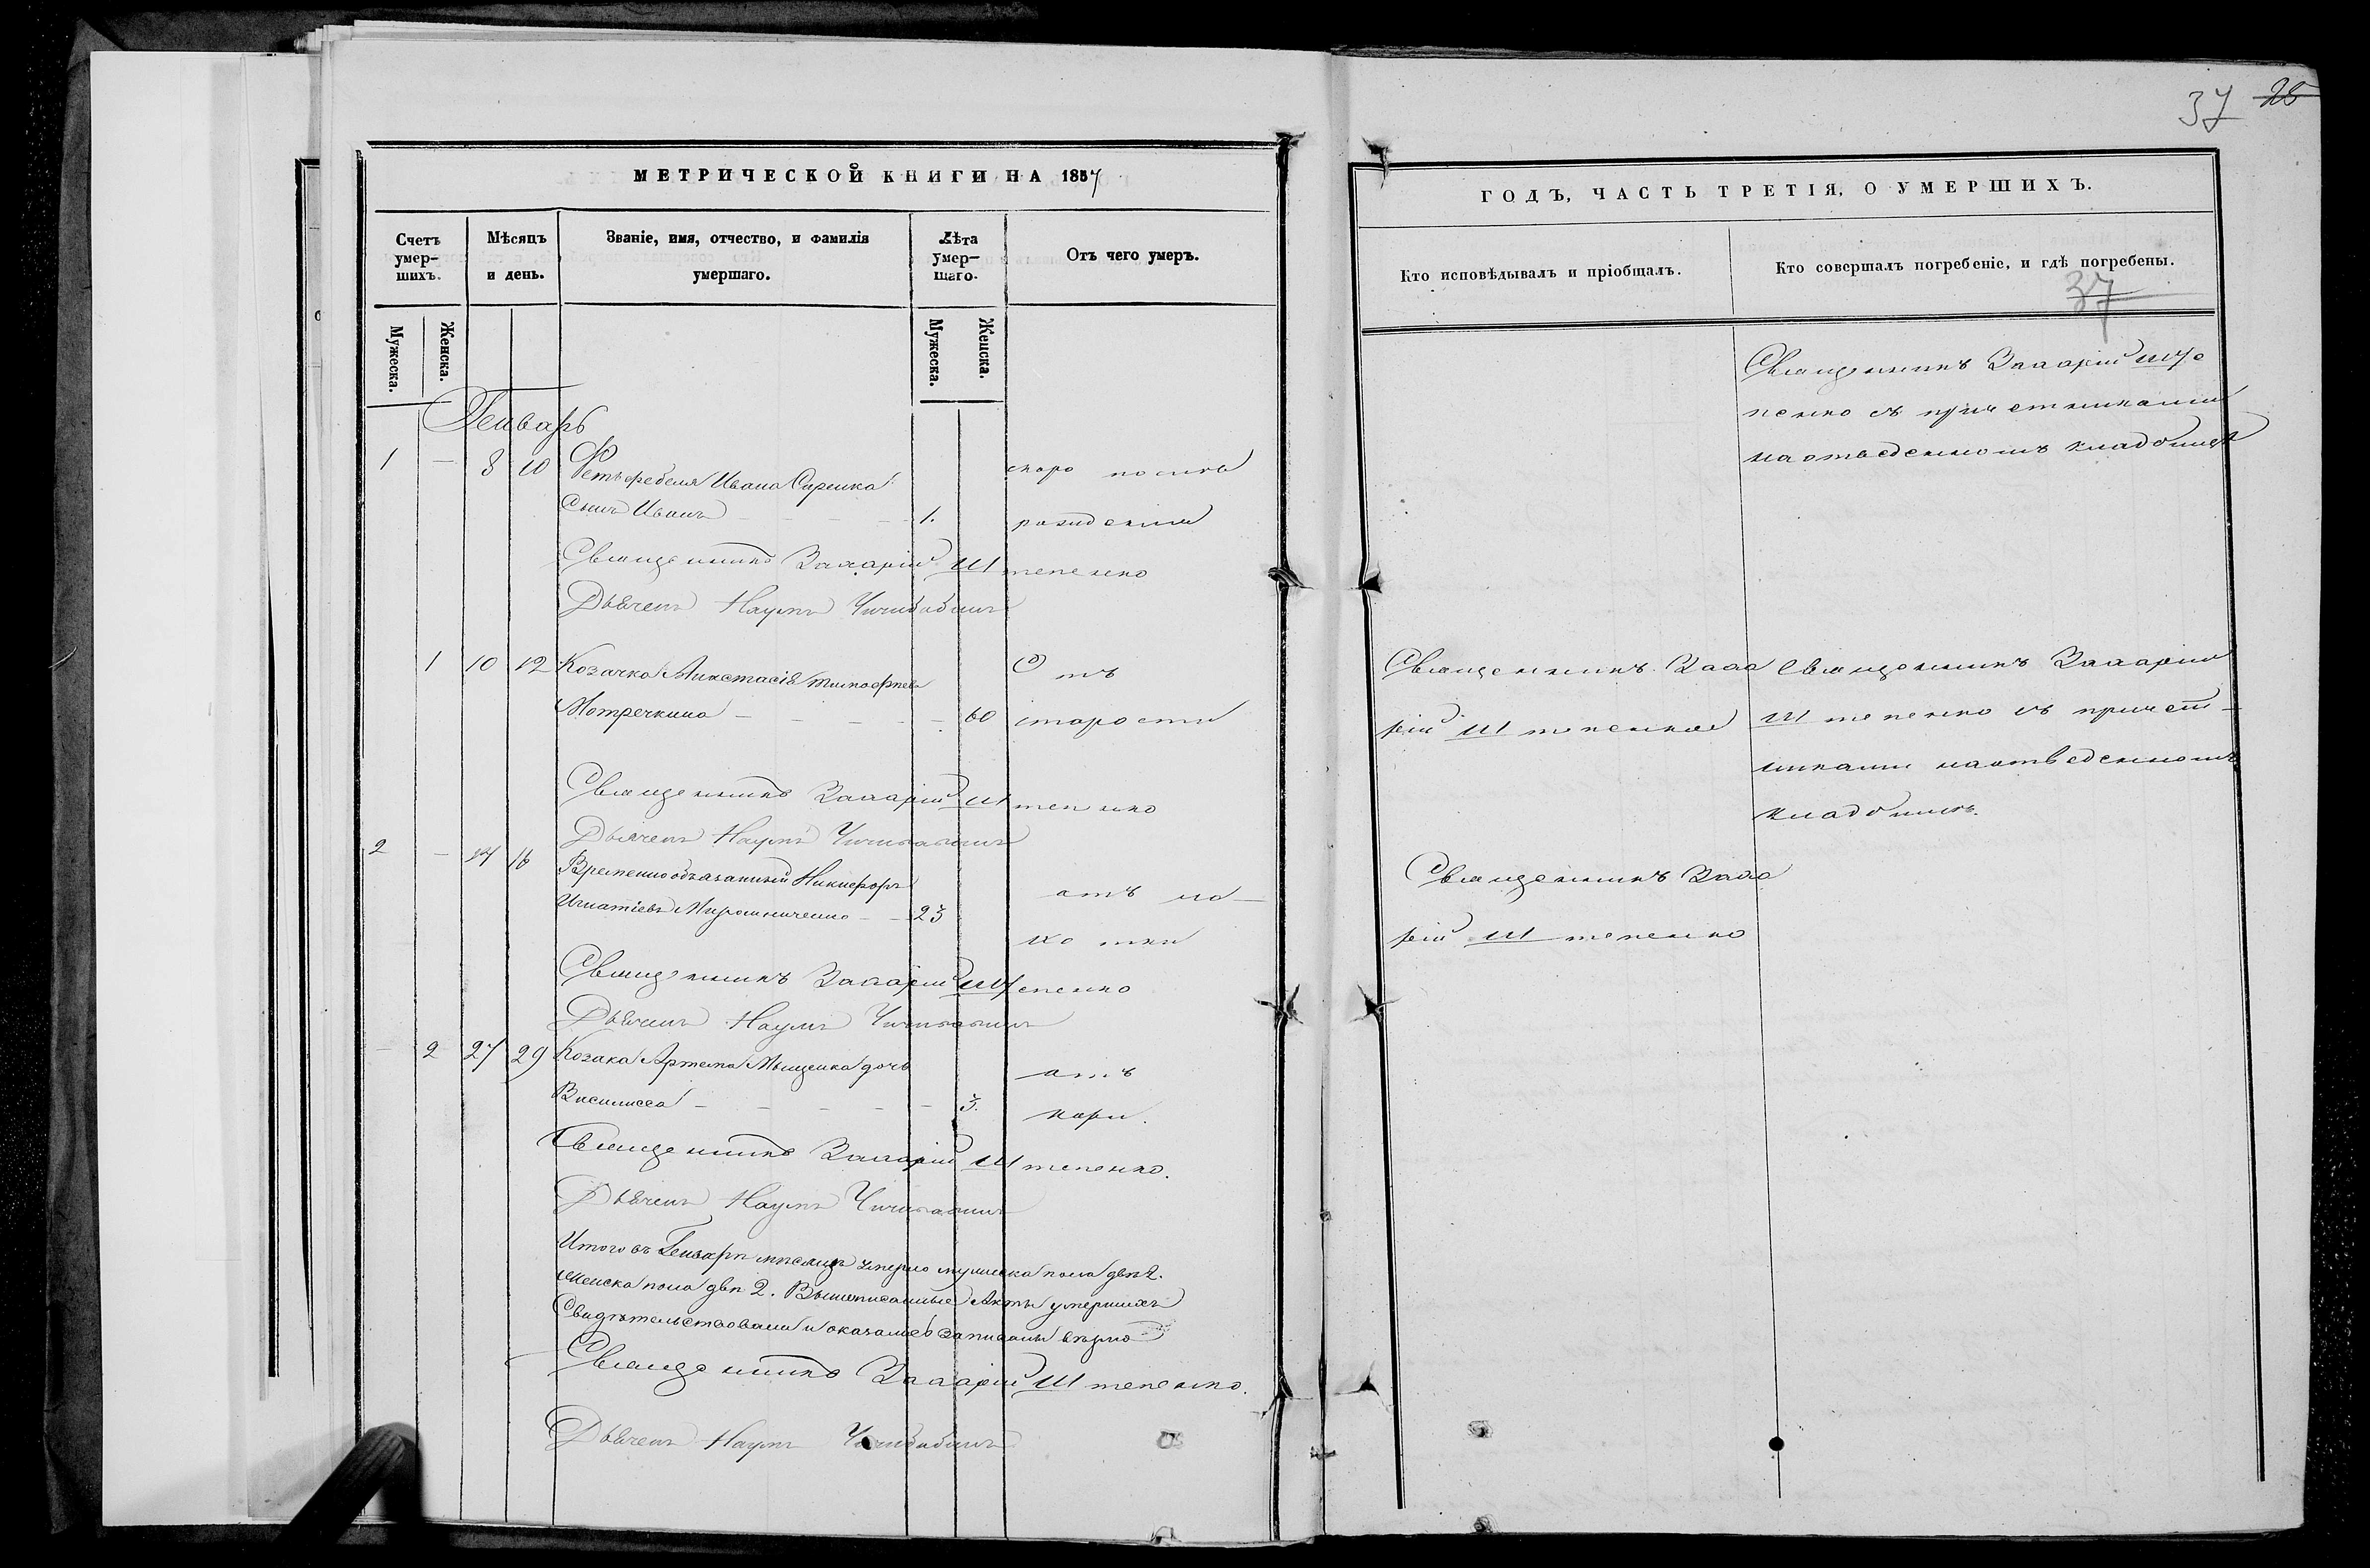 37 25
МЕТРИЧЕСКОЙ КНИГИ НА 1857
Счетъ умер-шихъ.
Мѣсяцъ и день.
Званіе, имя, отчество, и фамилія умершаго.
Лѣта умер-шаго.
Отъ чего умеръ.
Мужеска.
Женска.
Мужеска.
Женска.
Генварь
1 — 8 10
Ивана Саренка
сынъ Иванъ — 1.
скоро послѣ
рожденія
Священникъ Захарій Штепенко
Дьячекъ Наумъ Чичибабинъ
1 10 12 Козачка Анастасія Тимофіева
Мотречкина — 60
Отъ
старости
Священникъ Захарій Штепенко
Дьячекъ Наумъ Чичибабинъ
2 — 14 16 Временнообязанный Никифоръ
Игнатіевъ Мирошниченко — 23
отъ
Священникъ Захарій Штепенко
Дьячекъ Наумъ Чичибабинъ
— 2 27 29 Козака Артема Мищенка дочь
Василисса — 3.
отъ
кори.
Священникъ Захарій Штепенко.
Дьячекъ Наумъ Чичибабинъ
Итого въ Генварѣ мѣсяцѣ умерло мужеска пола два 2.
женска пола двѣ 2. Вышеписанные Акты умершихъ
Свидѣтельствовали и оказались записаны вѣрно
Священникъ Захарій Штепенко.
Дьячекъ Наумъ Чичибабинъ
ГОДЪ, ЧАСТЬ ТРЕТІЯ, О УМЕРШИХЪ.
Кто исповѣдывалъ и пріобщалъ.
Кто совершалъ погребеніе, и гдѣ погребены.
37
Священникъ ЗахарійШте
пенко съ причетниками
на отведенномъ кладбищѣ
Священникъ Заха
рій Штепенко
Священникъ Захарій
Штепенко съ причет-
никами на отведенномъ
кладбищѣ.
Священникъ Заха
рій Штепенко